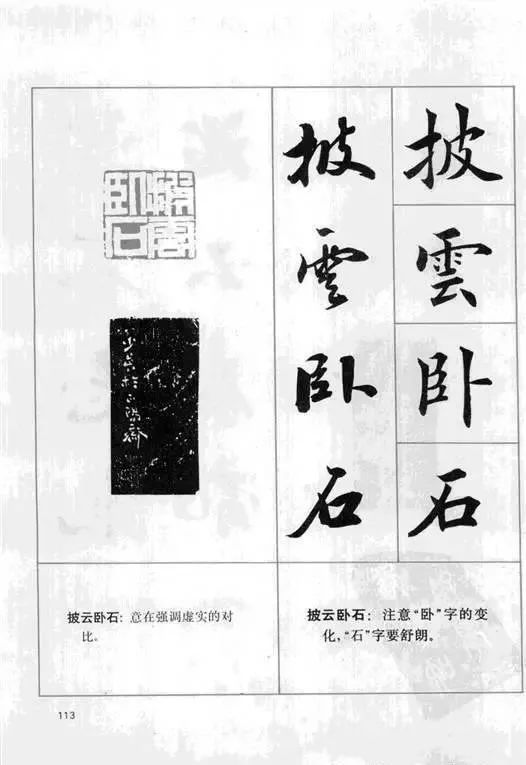 披雲卧石
披雲卧石
披雲
卧石
披云卧石：意在强调虚实的对
比。
披云卧石：注意“卧”字的变
化，“石”字要舒朗。
113